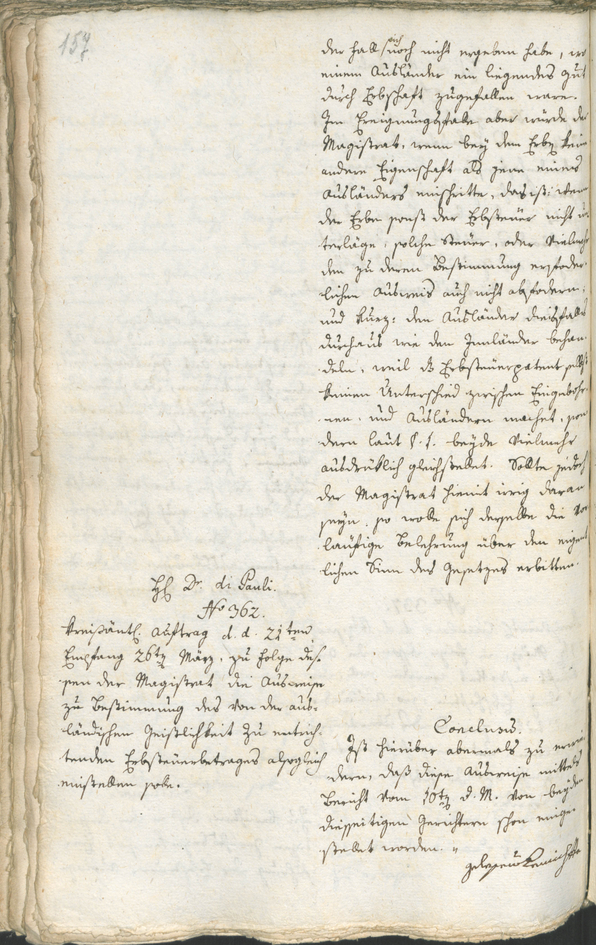 157
der Fall sich noch nicht ergeben habe, wo
einem Ausländer ein liegendes Gut
durch Erbschaft zugefallen wäre.
Im Ereignungsfalle aber würde der
Magistrat, wenn bey dem Erben keine
andere Eigenschaft als jene eines
Ausländers einschritte, das ist: wenn
der Erbe sonst der Erbsteuer nicht un-
terläge, solche Steuer, oder vielmehr
den zu deren Bestimmung erfoder-
lichen Ausweis auch nicht abfodern,
und kurz: den Ausländer diesfalls
durchaus wie den Innländer behan-
deln, weil das Erbsteuerpatent selbst
keinen Unterschied zwischen Eingebohr-
nen, und Ausländern machet, son-
dern laut §. 1. beyde vielmehr
ausdrüklich gleichstellet. Sollte jedoch
der Magistrat hiemit irrig daran
seyn, so wolle sich derselbe die vor-
läufige Belehrung über den eigent-
lichen Sinn des Gesetzes erbitten.
H. Dr. di Pauli.
No 362.
Kreisämtl. Auftrag d. d. 21ten
Empfang 26ten März, zu Folge des-
sen der Magistrat die Ausweise
zu Bestimmung des von der aus-
ländischen Geistlichkeit zu entrich-
tenden Erbsteuerbetrages alsogleich
einstellen solle.
Conclusum.
Ist hierüber abermals zu erwie-
dern, daß diese Ausweise mittels
Bericht vom 10ten d. M. von beyden
diesseitigen Gerichtern schon einge-
stellet worden.